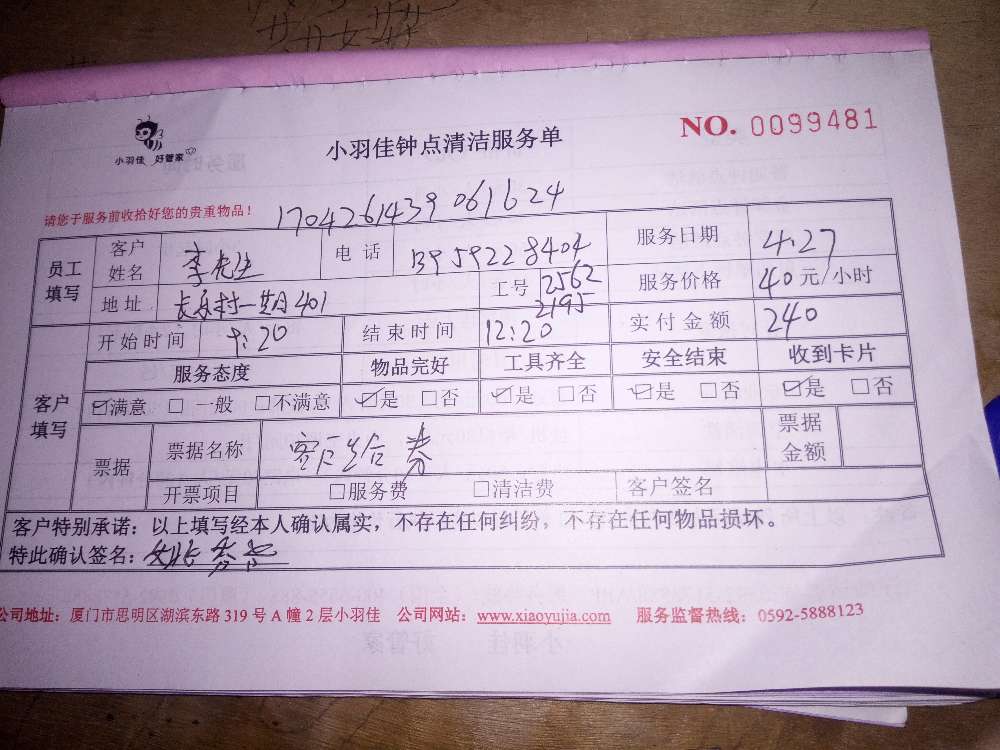 NO. 0099481
小羽佳 好管家
小羽佳钟点清洁服务单
请您于服务前收拾好您的贵重物品!
1704261439061624
员工填写 客户姓名 李先生 电话 13959228404 服务日期 4.27
地址 长乐村一期401 工号 2562 2195 服务价格 40元/小时
开始时间 9:20 结束时间 12:20 实付金额 240
客户填写 服务态度 物品完好 工具齐全 安全结束 收到卡片
☑满意 □一般 □不满意 ☑是 □否 ☑是 □否 ☑是 □否 ☑是 □否
票据 票据名称 客户给券 票据金额
开票项目 □服务费 □清洁费 客户签名
客户特别承诺:以上填写经本人确认属实,不存在任何纠纷,不存在任何物品损坏。
特此确认签名:
公司地址:厦门市思明区湖滨东路319号A幢2层小羽佳 公司网站:www.xiaoyujia.com 服务监督热线:0592-5888123